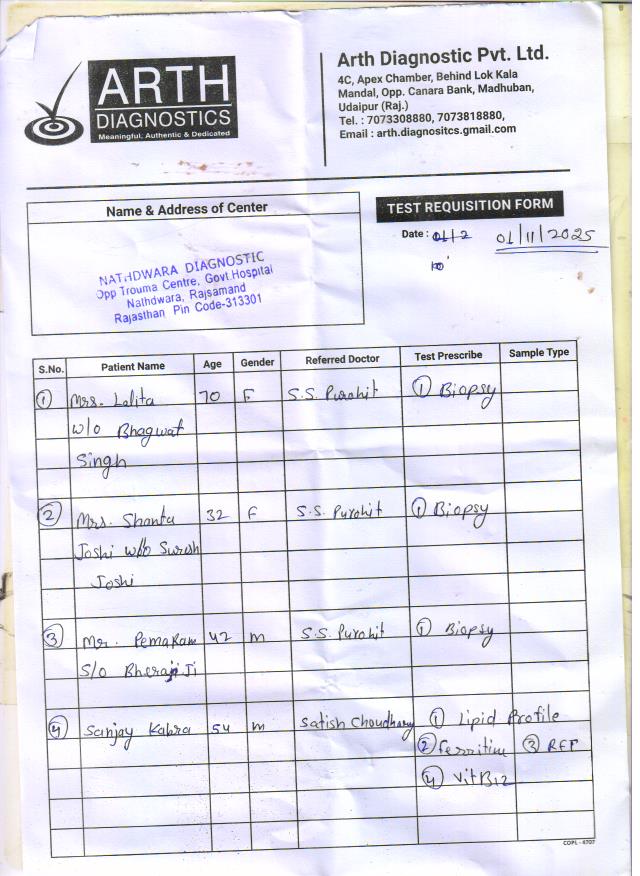 ARTH
DIAGNOSTICS
Meaningful, Authentic & Dedicated
Arth Diagnostic Pvt. Ltd.
4C, Apex Chamber, Behind Lok Kala
Mandal, Opp. Canara Bank, Madhuban,
Udaipur (Raj.)
Tel. : 7073308880, 7073818880,
Email : arth.diagnositcs.gmail.com
Name & Address of Center
NATHDWARA DIAGNOSTIC
Opp Trouma Centre, Govt.Hospital
Nathdwara, Rajsamand
Rajasthan Pin Code-313301
TEST REQUISITION FORM
Date : 01/11/2025
S.No. Patient Name Age Gender Referred Doctor Test Prescribe Sample Type
1 Mrs. Lalita 70 F S.S. Purohit 1 Biopsy
w/o Bhagwat
Singh
2 Mrs. Shanta 32 F S.S. Purohit 1 Biopsy
Joshi w/o Suresh
Joshi
3 Mr. PemaRam 42 m S.S. Purohit 1 Biopsy
S/o Bheraji Ji
4 Sanjay Kabra 54 m Satish Choudhary 1 Lipid Profile
2 Ferritim 3 RFT
4 Vit B12
COPL - 4707